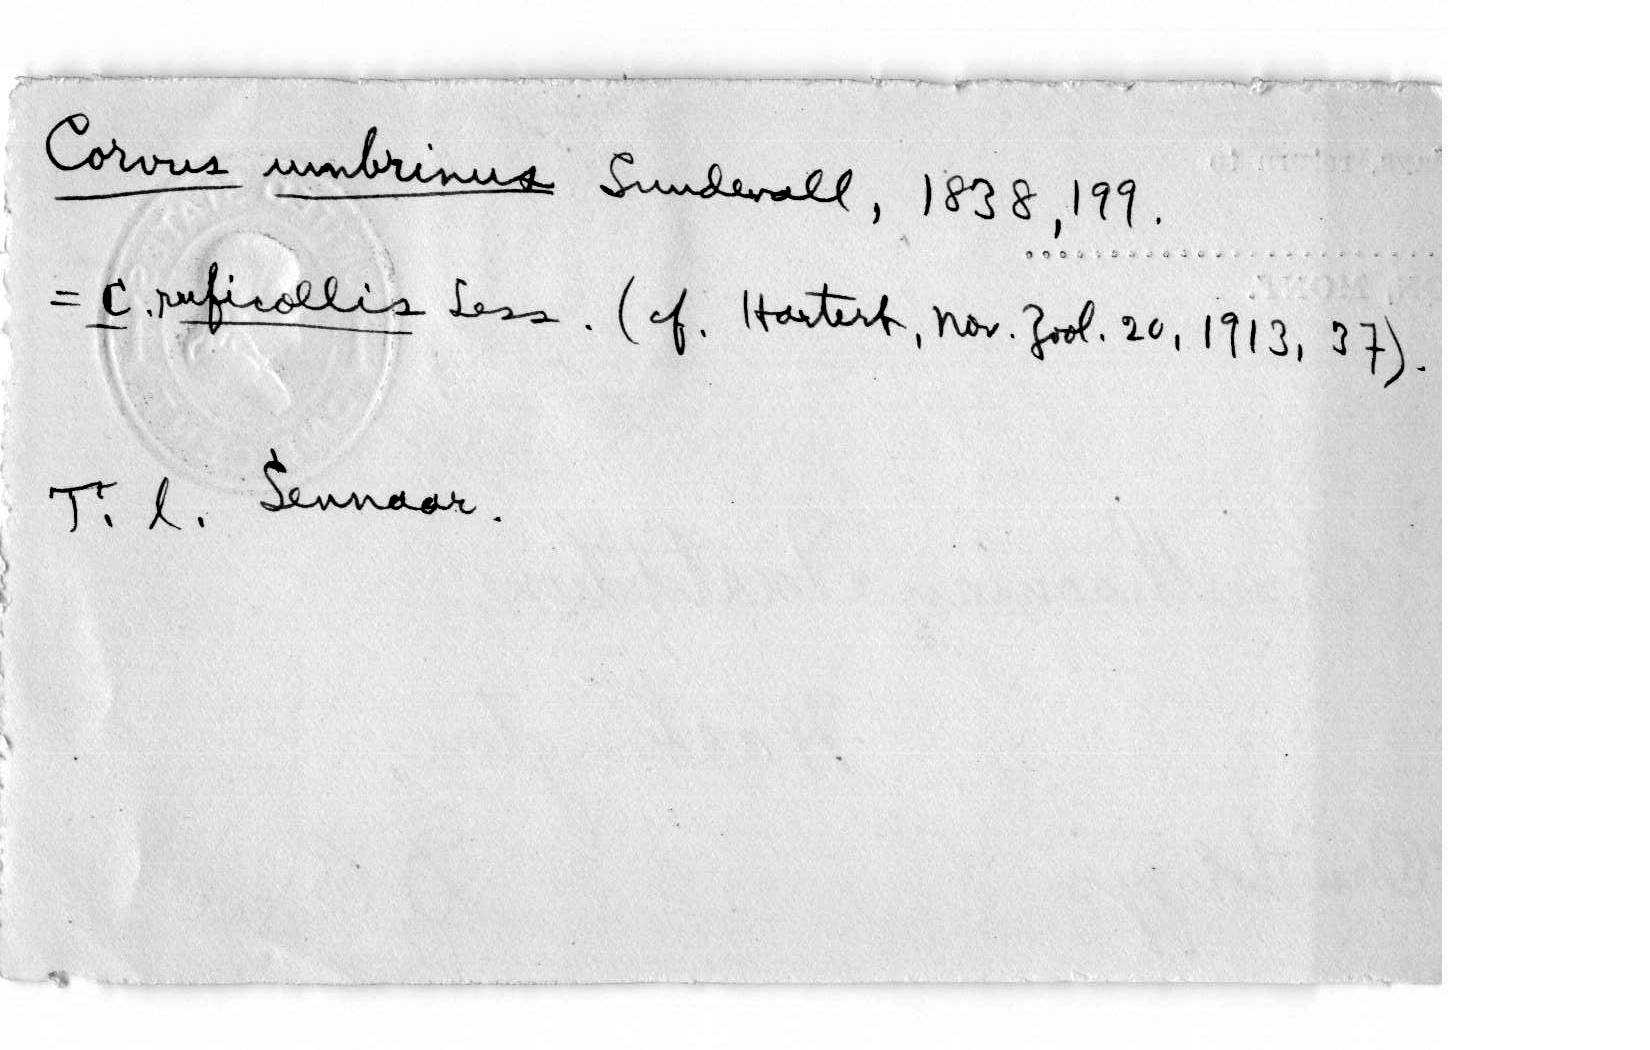 Corvus umbrinus Sundevall, 1838, 199.
= C. ruficollis Less. (cf. Hartert, Nov. Zool. 20, 1913, 37).
T. l. Sennaar.